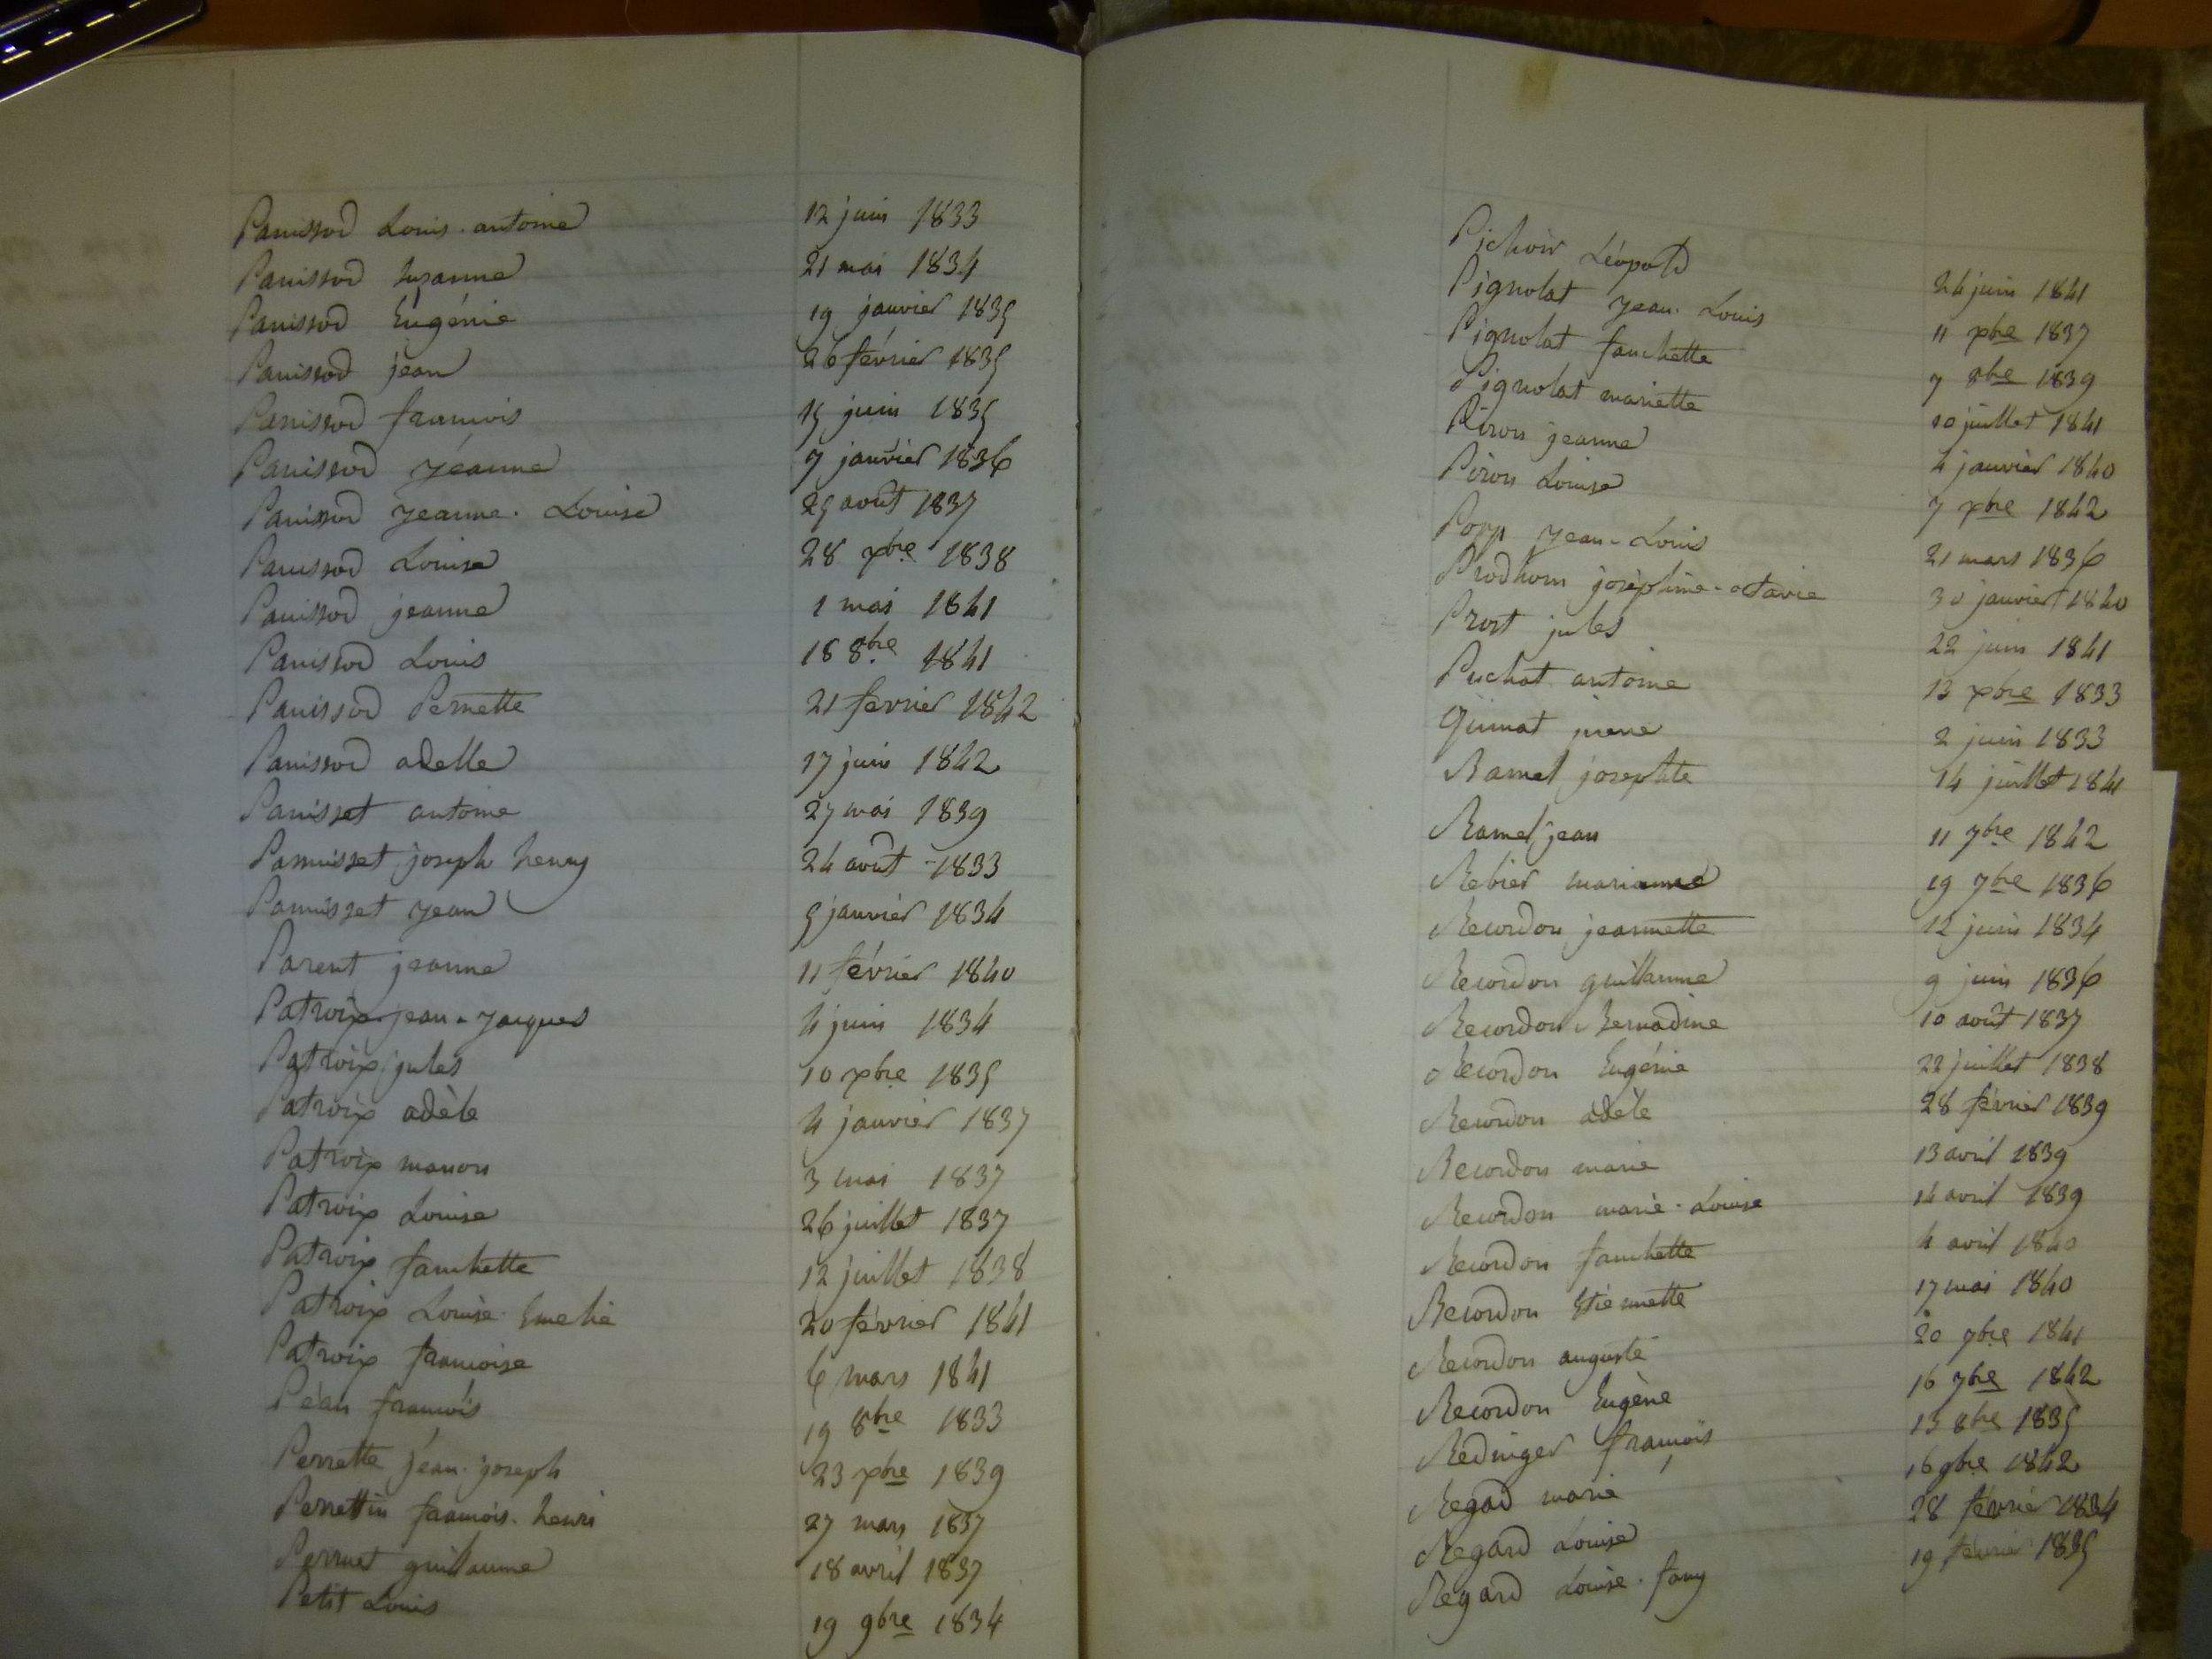 Panissod Louis. antoine 12 juin 1833
Panissod Suzanne 21 mai 1834
Panissod Eugénie 19 janvier 1835
Panissod jean 26 février 1835
Panissod francois 15 juin 1835
Panissod jeanne 7 janvier 1836
Panissod jeanne. Louise 25 août 1837
Panissod Louise 28 xbre 1838
Panissod jeanne 1 mai 1841
Panissod Louis 18 8bre 1841
Panissod Pernette 21 fevrier 1842
Panissod adelle 17 juin 1842
Panisset antoine 27 mai 1839
Pannisset joseph henry 24 août 1833
Pannisset jean 5 janvier 1834
Parent jeanne 11 février 1840
Patroix jean-jacques 4 juin 1834
Patroix jules 10 xbre 1835
Patroix adèle 4 janvier 1837
Patroix manon 3 mai 1837
Patroix Louise 26 juillet 1837
Patroix fanchette 12 juillet 1838
Patroix Louise Emelie 20 février 1841
Patroix francoise 6 mars 1841
Péan francois 19 8bre 1833
Perrette jean. joseph 23 xbre 1839
Perrettin francois. henri 27 mars 1837
Perruet guillaume 18 avril 1837
Petit Louis 19 9bre 1834
Pichoir Léopold 24 juin 1841
Pignolat jean. Louis 11 xbre 1837
Pignolat fanchette 7 8bre 1839
Pignolat mariette 10 juillet 1841
Piron jeanne 4 janvier 1840
Piron Louise 7 xbre 1842
Popp jean-Louis 21 mars 1836
Prodhom joséphine-octavie 30 janvier 1840
Prost jules 22 juin 1841
Puchat antoine 13 xbre 1833
2 juin 1833
Ramel josephte 14 juillet 1841
Ramel jean 11 7bre 1842
Rebier marianne 19 7bre 1836
Recordon jeannette 12 juin 1834
Recordon guillaume 9 juin 1836
Recordon Bernadine 10 août 1837
Recordon Eugénie 22 juillet 1838
Recordon adèle 28 février 1839
Recordon marie 13 avril 1839
Recordon marie-Louise 14 avril 1839
Recordon fanchette 4 avril 1840
Recordon Etiennette 17 mai 1840
Recordon auguste 20 7bre 1841
Recordon Eugène 16 7bre 1842
Redinger françois 13 8bre 1835
Regard marie 16 9bre 1842
Regard Louise 28 février 1834
Regard Louise. fany 19 février 1835